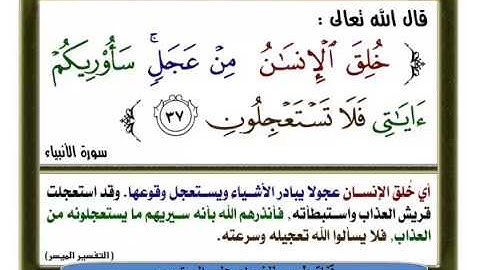 قال الله تعالى :
﴿ خُلِقَ ٱلْإِنسَـٰنُ مِنْ عَجَلٍۚ سَأُو۟رِيكُمْ
ءَايَـٰتِى فَلَا تَسْتَعْجِلُونِ ٣٧ ﴾
سورة الأنبياء
أي خُلق الإنسان عجولا يبادر الأشياء ويستعجل وقوعها. وقد استعجلت
قريش العذاب واستبطأته، فأنذرهم الله بأنه سيريهم ما يستعجلونه من
العذاب، فلا يسألوا الله تعجيله وسرعته.
(التفسير الميسر)